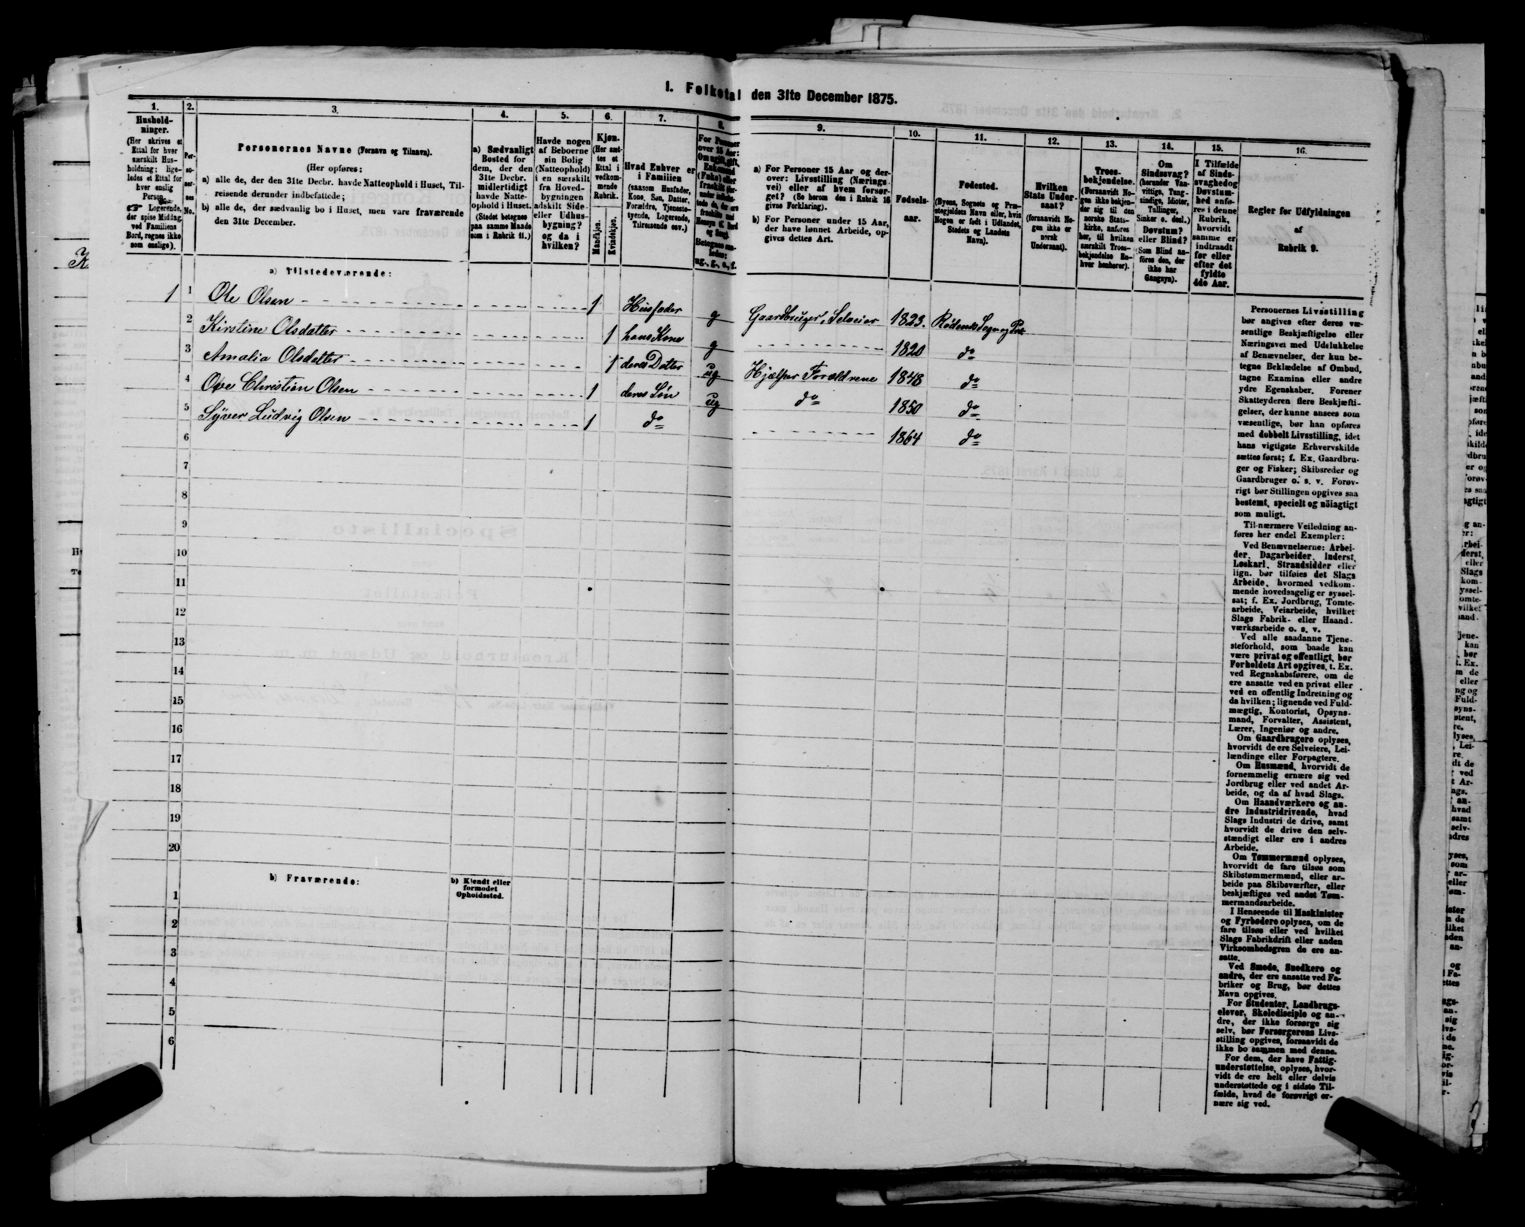 1. Folketal den 31te December 1875.
1.
Hushold-
ninger.
(Her skrives et
Ettal for hver
særskilt Hus-
holdning; lige-
ledes et Ettal for
hver enslig
Person.
Logerende,
der spise Middag
ved Familiens
Bord, regnes ikke
som enslige).
2.
3.
Personernes Navne (Fornavn og Tilnavn).
(Her opføres:
a) alle de, der den 31te Decbr. havde Natteophold i Huset, Til-
reisende derunder indbefattede;
b) alle de, der sædvanlig bo i Huset, men vare fraværende
den 31te December.
4.
a) Sædvanligt
Bosted for
dem, der den
31te Decbr.
midlertidigt
havde Natte-
ophold i Huset.
(Stedet betegnes
paa samme Maade
som i Rubrik 11.)
5.
Havde nogen
af Beboerne
sin Bolig
(Natteophold)
i en særskilt
fra Hoved-
bygningen
adskilt Side-
eller Udhus-
bygning?
og da i
hvilken?
6.
Kjøn.
(Her sæt-
tes et
Ettal i
vedkom-
mende
Rubrik.
Mandkjøn.
Kvindekjøn.
7.
Hvad Enhver er
i Familien
(saasom Husfader,
Kone, Søn, Datter,
Forældre, Tjeneste-
tyende, Logerende,
Tilreisende osv.)
8.
9.
a) For Personer 15 Aar og der-
over: Livsstilling (Nærings-
vei) eller af hvem forsør-
get? (Se herom den i Rubrik 16
givne Forklaring).
b) For Personer under 15 Aar,
der have lønnet Arbeide, op-
gives dettes Art.
10.
Fødsels-
aar.
11.
Fødested.
(Byens, Sognets og Præ-
stegjeldets Navn eller, hvis
Nogen er født i Udlandet,
Stedets og Landets
Navn).
12.
Hvilken
Stats Under-
saat?
(forsaavidt No-
gen ikke er
norsk
Undersaat).
13.
Troes-
bekjendelse.
(Forsaavidt No-
gen ikke bekjen-
der sig til den
norske Stats-
kirke, anføres
her, til hvilken
særskilt Troes-
bekjendelse En-
hver henhører).
14.
Om
Sindssvag?
(herunder Van-
vittige, Tung-
sindige, Idioter,
Tullinger,
Sinker o. desl.)
Døvstum?
eller Blind?
Som Blind an-
føres den, der
ikke har
Gangsyn).
15.
I Tilfælde
af Sinds-
svaghed og
Døvstum-
hed anfø-
res i denne
Rubrik,
hvorvidt
samme er
indtraadt
før eller
efter det
fyldte
4de Aar.
16.
Regler for Udfyldningen
af
Rubrik 9.
a) Tilstedeværende:
1 1 Ole Olsen 1 Husfader g Gaardbruger, Selveier 1823. Rødenes Sogn og Pr.
2 Kirstine Olsdatter 1 hans Kone g 1820 do
3 Amalia Olsdatter 1 deres Datter ug Hjælper Forældrene 1848 do
4 Ove Christian Olsen 1 deres Søn ug do 1850 do
5 Syver Ludvig Olsen 1 do 1864 do
6
7
8
9
10
11
12
13
14
15
16
17
18
19
20
b) Fraværende:
b) Kjendt eller
formodet
Opholdssted.
1
2
3
4
5
6
Personernes Livsstilling
bør angives efter deres væ-
sentlige Beskjæftigelse eller
Næringsvei med Udelukkelse
af Benævnelser, der kun be-
tegne Beklædelse af Ombud,
tagne Examina eller andre
ydre Egenskaber. Forener
Skatteyderen flere Beskjæfti-
gelser, der kunne ansees som
væsentlige, bør han opføres
med dobbelt Livsstilling, idet
hans vigtigste Erhvervskilde
sættes først; f. Ex. Gaardbru-
ger og Fisker; Skibsreder og
Gaardbruger o. s. v. Forøv-
rigt bør Stillingen opgives saa
bestemt, specielt og nøiagtigt
som muligt.
Til nærmere Veiledning an-
føres her endel Exempler:
Ved Benævnelserne: Arbei-
der, Dagarbeider, Inderst,
Løskarl, Strandsidder eller
lign. bør tilføies det Slags
Arbeide, hvormed vedkom-
mende hovedsagelig er syssel-
sat; f. Ex. Jordbrug, Tomte-
arbeide, Veiarbeide, hvilket
Slags Fabrik- eller Haand-
værksarbeide o. s. v.
Ved alle saadanne Tjene-
steforhold, som baade kan
være privat og offentligt, bør
Forholdets Art opgives, t. Ex.
ved Regnskabsførere, om de
ere ansatte ved en privat eller
ved en offentlig Indretning og
da hvilken; lignende ved Fuld-
mægtig, Kontorist, Opsyns-
mand, Forvalter, Assistent,
Lærer, Ingeniør og andre.
Om Gaardbrugere oplyses,
hvorvidt de ere Selveiere, Lei-
lændinge eller Forpagtere.
Om Husmænd, hvorvidt de
fornemmelig ernære sig ved
Jordbrug eller ved andet Ar-
beide, og da af hvad Slags.
Om Haandværkere og an-
dre Industridrivende, hvad
Slags Industri de drive, samt
hvorvidt de drive den selv-
stændigt eller ere i andres
Arbeide.
Om Tømmermænd oplyses,
hvorvidt de fare tilsøs som
Skibstømmermænd, eller ar-
beide paa Skibsværfter, eller
beskjæftiges ved andet Tøm-
mermandsarbeide.
I Henseende til Maskinister
og Fyrbødere oplyses, om de
fare tilsøs eller ved hvilket
Slags Fabrikdrift eller anden
Virksomhedsgren de ere an-
satte.
Ved Smede, Snedkere og
andre, der ere ansatte ved Fa-
briker og Brug, bør dettes
Navn opgives.
For Studenter, Landbrugs-
elever, Skoledisciple og an-
dre, der ikke forsørge sig
selv, bør Forsørgerens Livs-
stilling opgives, forsaavidt de
ikke bo sammen med denne.
For dem, der have Fattig-
understøttelse, oplyses, hvor-
vidt de ere helt eller delvis
understøttede og i sidste Til-
fælde, hvad de forøvrigt er-
nære sig ved.